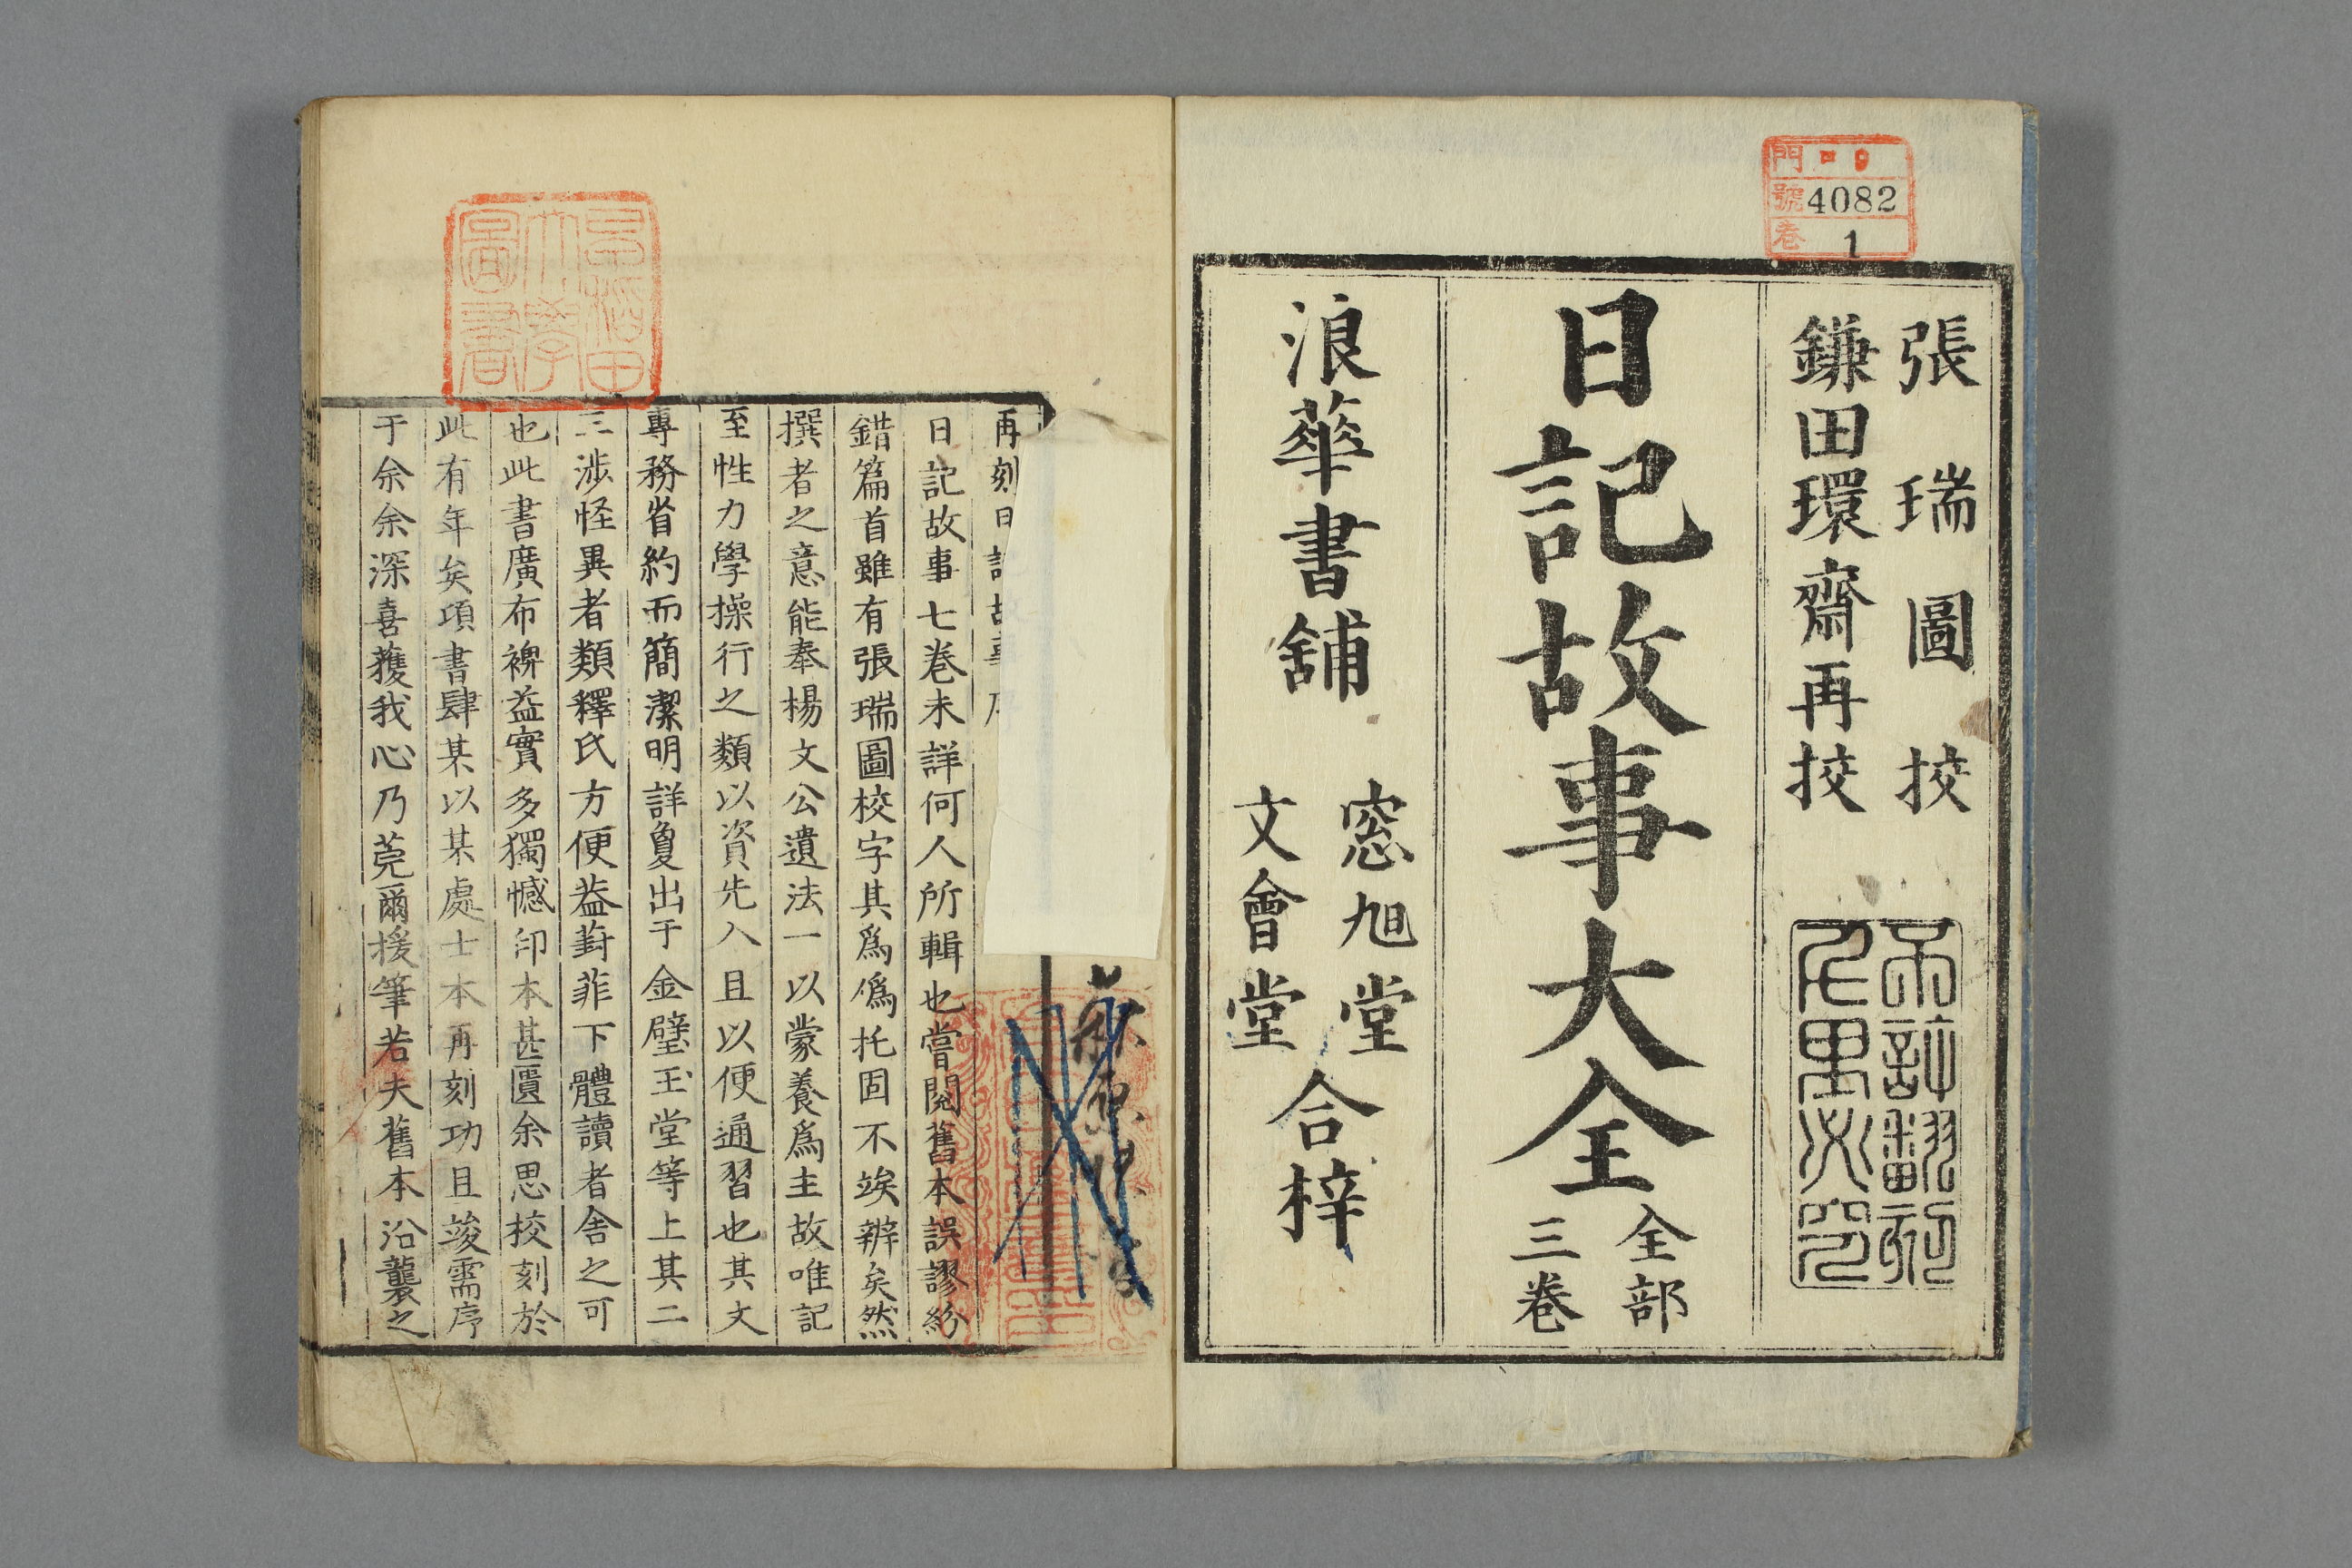 門
號 4082
卷 1
張瑞圖挍
鎌田環齋再挍
不許翻刻
千里必究
日記故事大全
全部
三卷
浪華書舖
窓旭堂
文會堂
合梓
早稲田
大學
圖書
再刻日記故事序
日記故事七卷未詳何人所輯也嘗閱舊本誤謬紛
錯篇首雖有張瑞圖校字其爲僞托固不竢辨矣然
撰者之意能奉楊文公遺法一以蒙養爲主故唯記
至性力學操行之類以資先入且以便通習也其文
專務省約而簡潔明詳夐出于金璧玉堂等上其二
三涉怪異者類釋氏方便葢葑菲下體讀者舍之可
也此書廣布裨益實多獨憾印本甚匱余思校刻於
此有年矣項書肆某以某處士本再刻功且竣需序
于余余深喜蒦我心乃莞爾援筆若夫舊本沿襲之